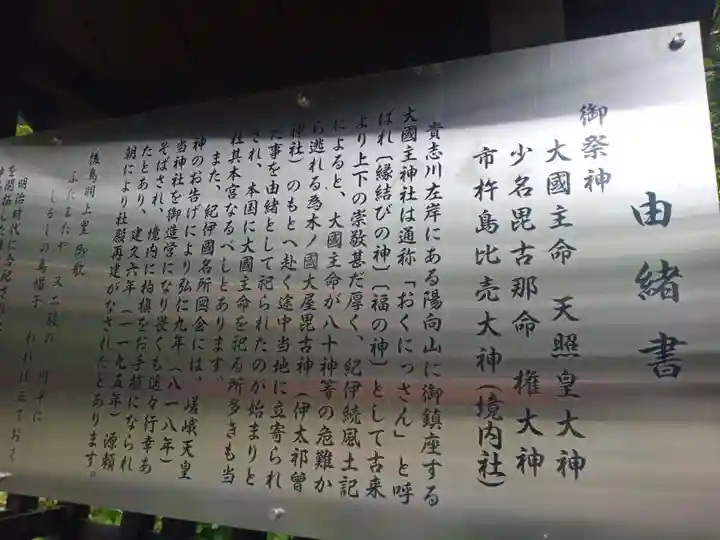 由緒書
御祭神
大國主命 天照皇大神
少名毘古那命 権大神
市杵島比売大神(境内社)
貴志川左岸にある陽向山に御鎮座する
大國主神社は通称「おくにっさん」と呼
ばれ〔縁結びの神〕〔福の神〕として古来
より上下の崇敬甚だ厚く、紀伊続風土記
によると、大國主命が八十神等の危難か
ら逃れる為木ノ國大屋毘古神(伊太祁曽
神社)のもとへ赴く途中当地に立寄られ
た事を由緒として祀られたのが始まりと
され、本国に大國主命を祀る所多きも当
社其本宮なるべしとあります。
また、紀伊國名所図会には、嵯峨天皇
神のお告げにより弘仁九年(八一八年)
当神社を御造営になり畏くも遠々行幸あ
そばされ、境内に柏槙をお手植になられ
たとあり、建久六年(一一九五年)源頼
朝により社殿再建がなされたとあります。
後鳥羽上皇 御歌